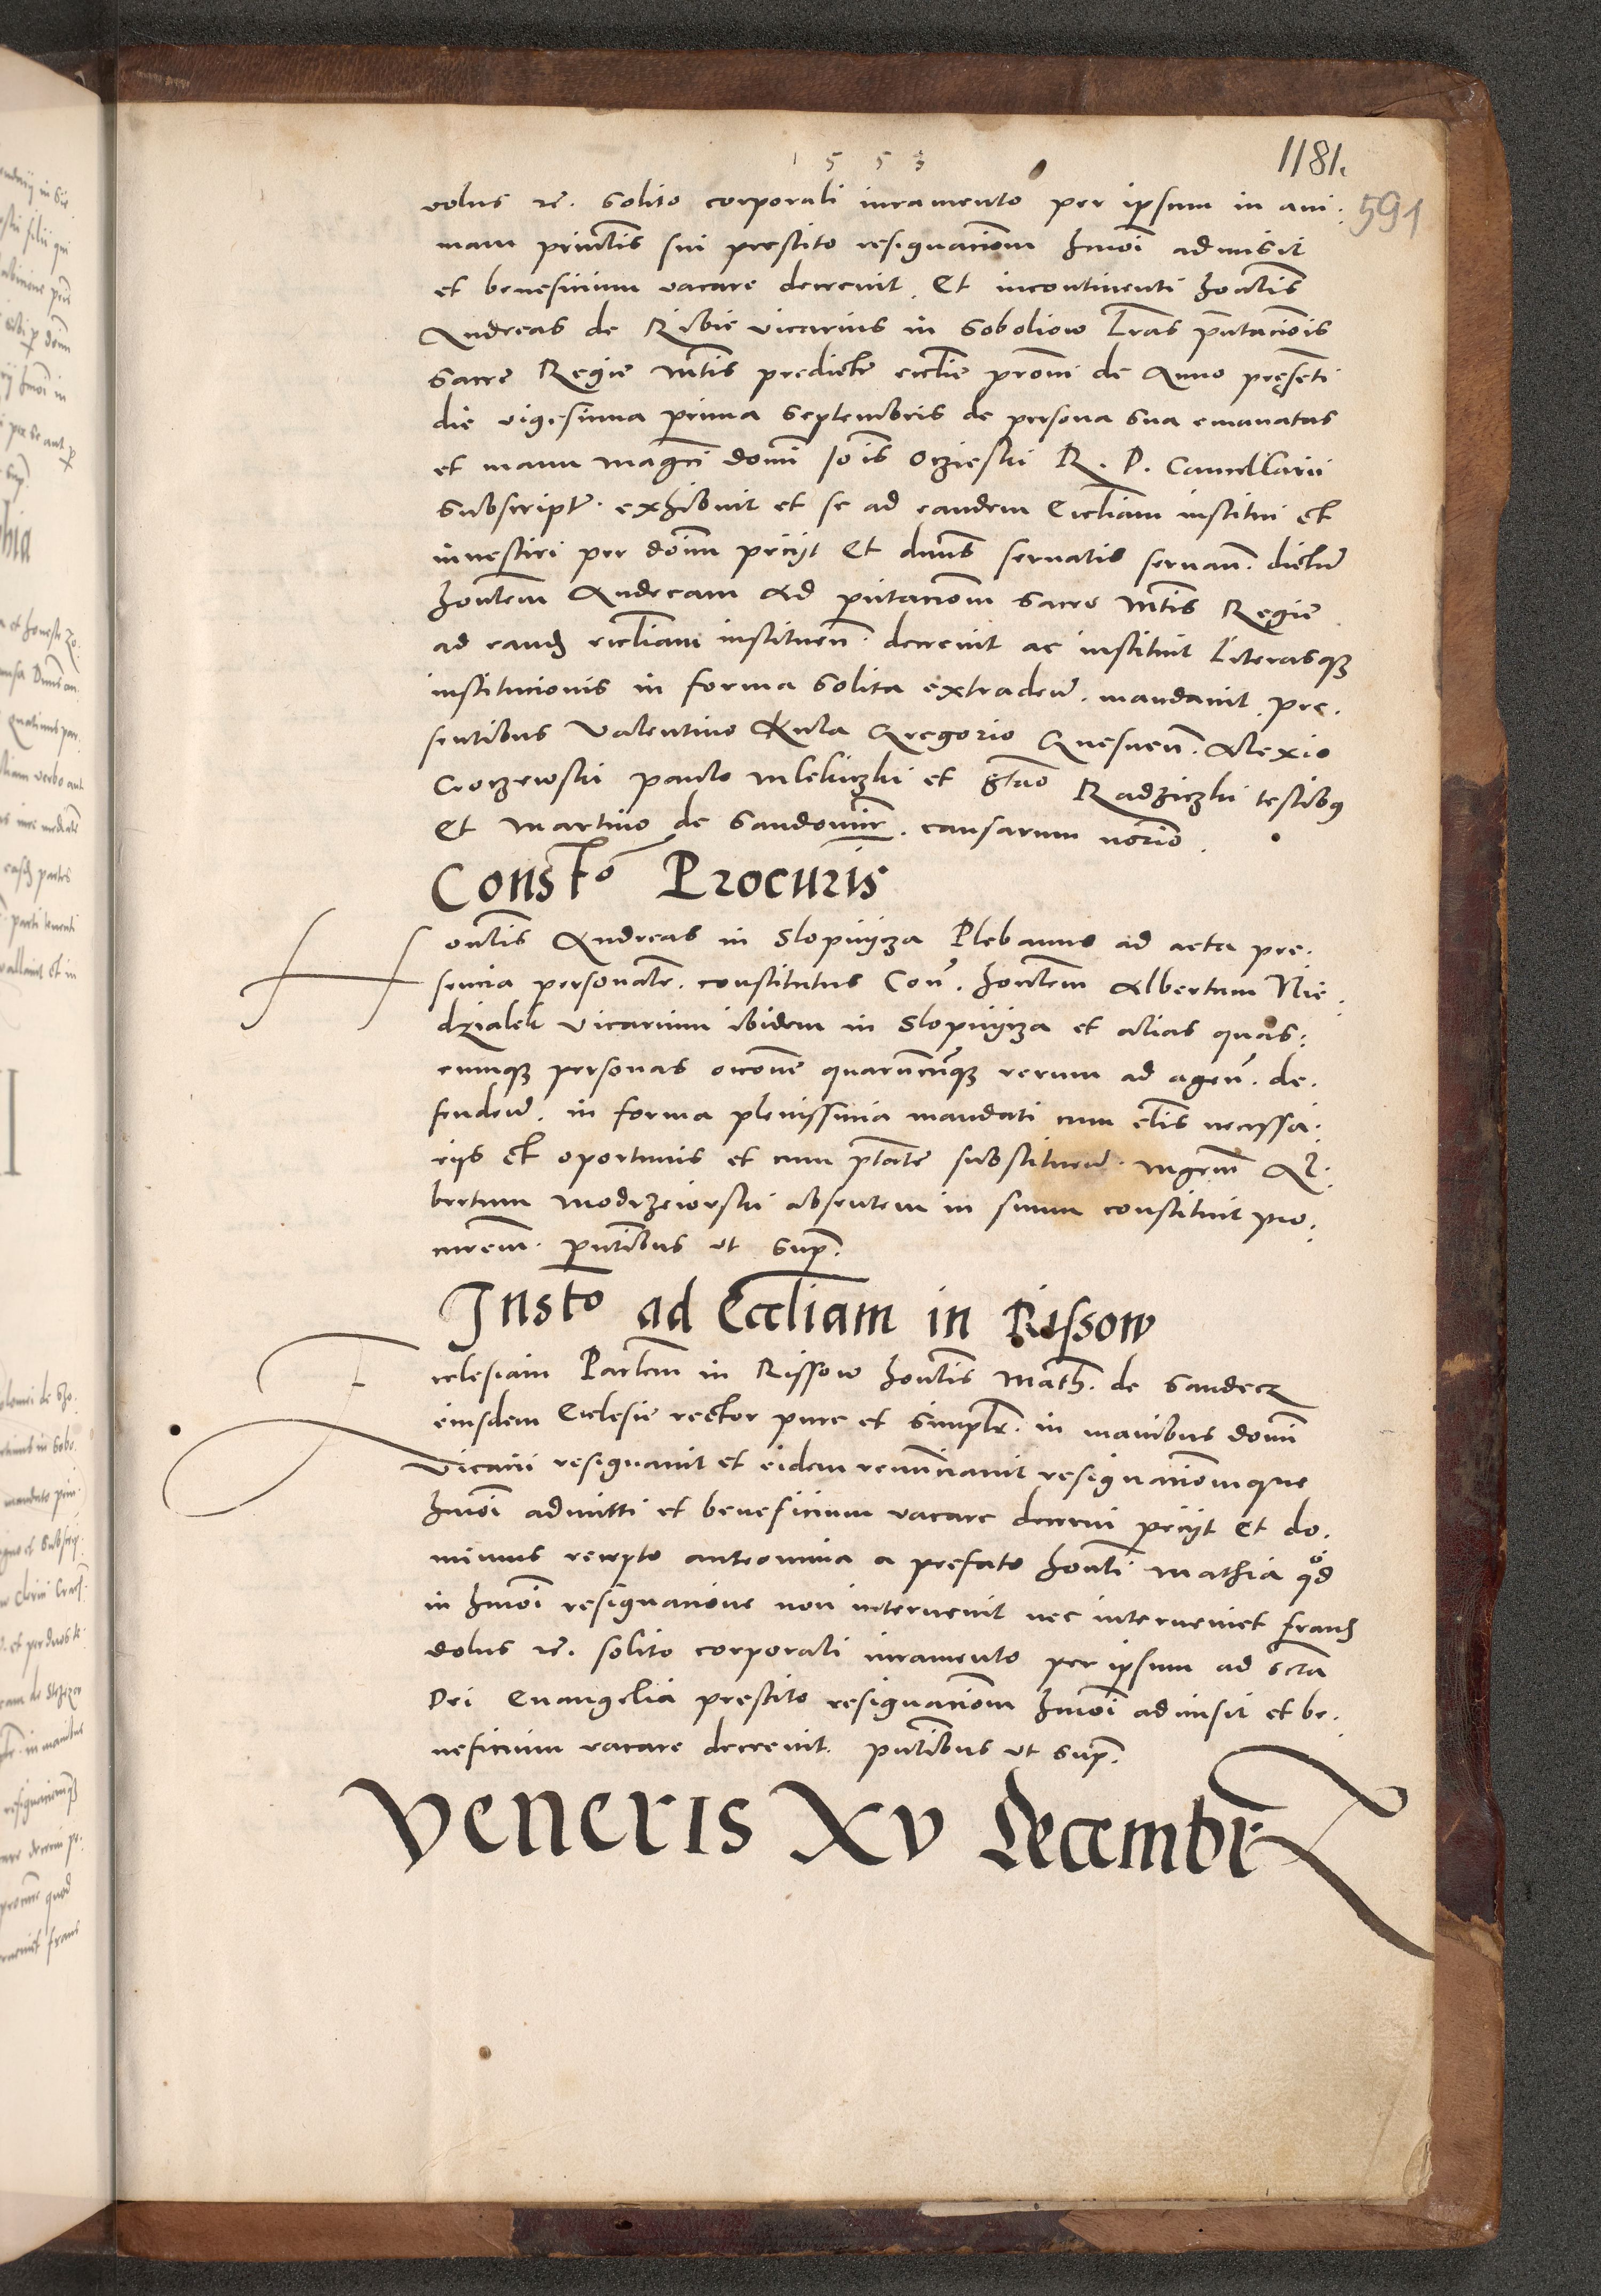 1553
1181.
591
dolus rc. solito corporali iuramento per ipsum in ani:
mam princtis sui prestito resignacionem hmoi admisit
et beneficium vacare decrevit. Et incontinenti honestis
Andreas de Ribie vicarius in Soboliow Lras pntacionis
Sacre Regie Mtis predicte ecclie promi de Anno pręsenti
die vigesima prima Septembris de persona sua emanatas
et manu magci domi Jois Oczieski R. P. Cancellarii
subscript. exhibuit et se ad eandem Eccliam institui et
investiri per doim peciit Et dnus servatis servan. dictum
hontem Andream ad pntacionem Sacre Mtis Regie
ad eand eccliam instituen. decrevit ac instituit Literasq
institucionis in forma solita extraden. mandavit. pre.
sentibus Valentino Kula Gregorio Gnesnen. Alexio
Croczewski Paulo Mlekiczki et Stao Radziczki testibus
et Martino de Sandomir. causarum notrio.
Consto Procuris
Hontis Andreas in Slopnycza Plebanus ad acta pre.
sencia personalr. constitutus Con. hontem Albertum Nie
dzialek vicarium ibidem in Slopnycza et alias quas:
cumq personas occone quarumcunq rerum ad agen. de.
fenden. in forma plenissima mandati cum clis necessa:
riis et oportunis et cum ptate substituen. Mgrum Al:
bertum Modrzeiewski absentem in suum constituit pro.
curem. pntibus ut sup.
Insto ad Eccliam in Rissow
Ecclesiam Parlem in Rissow hontis Math. de Sandecz
eiusdem Ecclesie rector pure et simplr. in manibus domi
Vicarii resignavit et eidem renunciavit resignacionemque
hmoi admitti et beneficium vacare decerni peciit et do.
minus recepto anteomnia a prefato honti Mathia qd
in hmoi resignacione non intervenit nec interveniet fraus
dolus rc. solito corporali iuramento per ipsum ad scta
Dei Evangelia prestito resignacionem hmoi admisit et be.
neficium vacare decrevit. pntibus ut sup.
Veneris XV Decembr